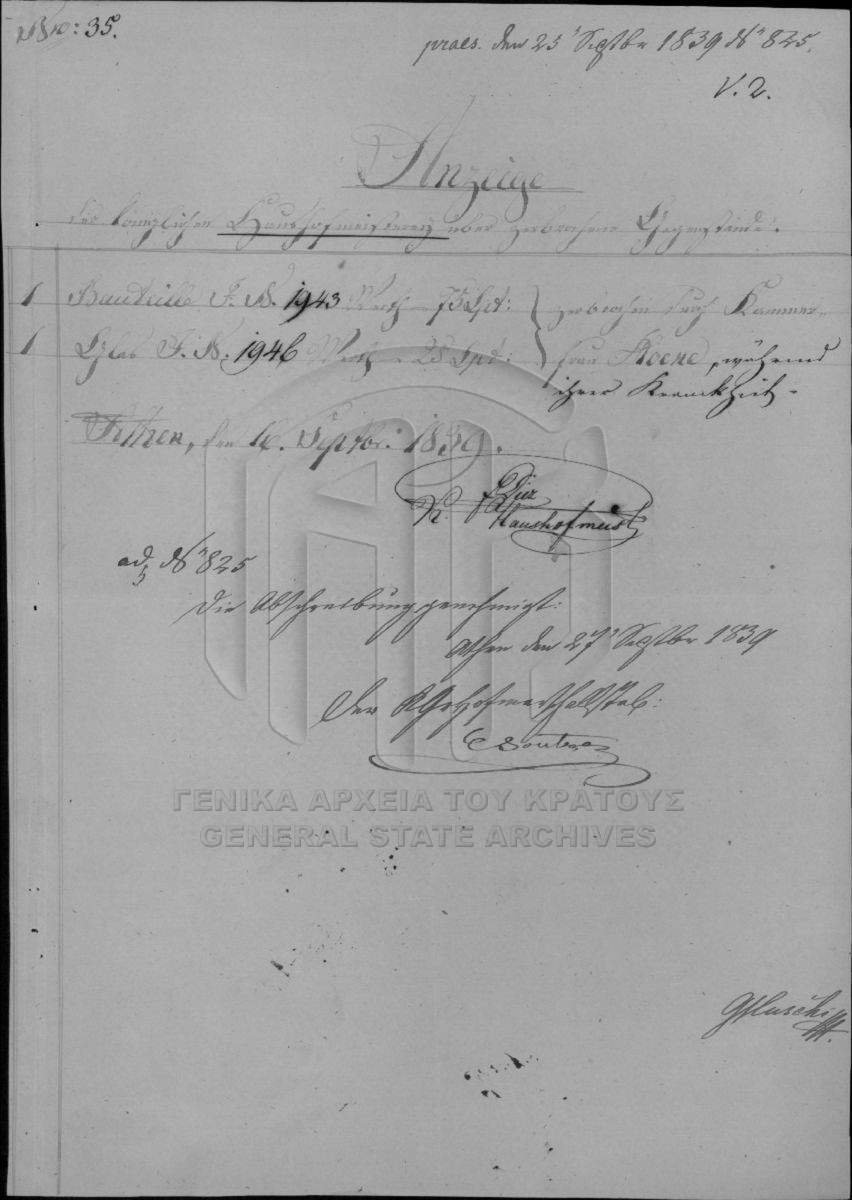 No: 35.
praes. den 25' Septbr 1839 No 825.
V. 2.
Anzeige
der königlichen Haushofmeisterey über zerbrochene Gegenstände.
1 Bouteille I. N. 1943 Werth - 75 Lpt: } zerbrochen durch Kammer-
1 Glas I. N. 1946 Werth - 25 Lpt: } frau Koene, während
ihrer Kranckheit -
Athen, den 16. Septbr. 1839.
K. Haushofmeist
ad No 825
Die Abschreibung genehmigt:
Athen den 27' Septbr 1839
Der K. Gr. Hofmarschallstab:
ΓΕΝΙΚΑ ΑΡΧΕΙΑ ΤΟΥ ΚΡΑΤΟΥΣ
GENERAL STATE ARCHIVES